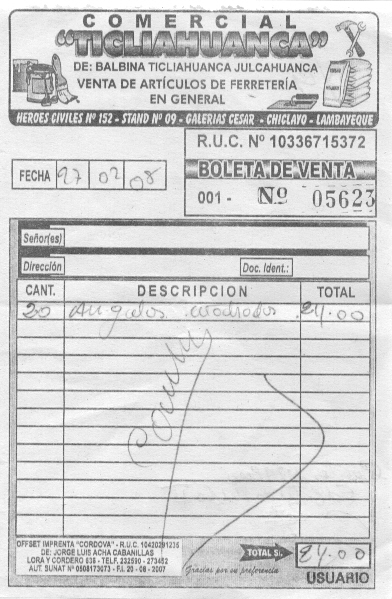 COMERCIAL
"TICLIAHUANCA"
DE: BALBINA TICLIAHUANCA JULCAHUANCA
VENTA DE ARTÍCULOS DE FERRETERÍA
EN GENERAL
HEROES CIVILES Nº 152 - STAND Nº 09 - GALERIAS CESAR - CHICLAYO - LAMBAYEQUE
R.U.C. Nº 10336715372
FECHA 27 02 08
BOLETA DE VENTA
001 - Nº 05623
Señor(es)
Dirección Doc. Ident.:
CANT. DESCRIPCION TOTAL
20 Angulos cuadrados 24.00
OFFSET IMPRENTA "CORDOVA" - R.U.C. 10420291235
DE: JORGE LUIS ACHA CABANILLAS
LORA Y CORDERO 838 - TELF. 232590 - 273452
AUT. SUNAT Nº 0908173073 - F.I. 20 - 08 - 2007
Gracias por su preferencia
TOTAL S/. 24.00
USUARIO